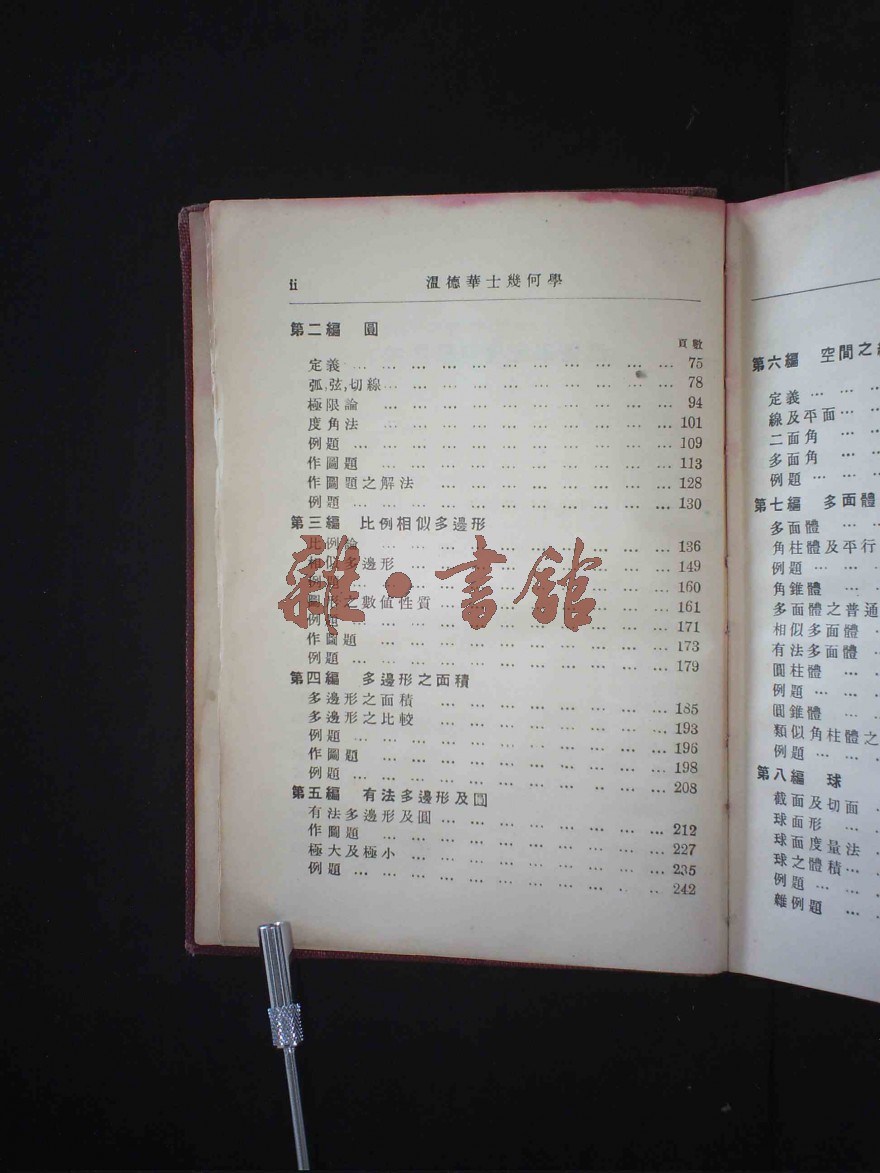 ii 溫德華士幾何學
第二編 圓
頁數
定義 … … … … … … … … … … … 75
弧,弦,切線 … … … … … … … … … … 78
極限論 … … … … … … … … … … 94
度角法 … … … … … … … … … … 101
例題 … … … … … … … … … … … 109
作圖題 … … … … … … … … … … 113
作圖題之解法 … … … … … … … … 128
例題 … … … … … … … … … … … 130
第三編 比例相似多邊形
比例論 … … … … … … … … … … 136
相似多邊形 … … … … … … … … … 149
例題 … … … … … … … … … … … 160
圖形之數值性質 … … … … … … … … 161
例題 … … … … … … … … … … … 171
作圖題 … … … … … … … … … … 173
例題 … … … … … … … … … … … 179
第四編 多邊形之面積
多邊形之面積 … … … … … … … … 185
多邊形之比較 … … … … … … … … 193
例題 … … … … … … … … … … … 196
作圖題 … … … … … … … … … … 198
例題 … … … … … … … … … … … 208
第五編 有法多邊形及圓
有法多邊形及圓 … … … … … … … … 212
作圖題 … … … … … … … … … … 227
極大及極小 … … … … … … … … … 235
例題 … … … … … … … … … … … 242
雜·書館
第六編 空間之
定義 … …
線及平面 … …
二面角 … …
多面角 … …
例題 … …
第七編 多面體
多面體 … …
角柱體及平行
例題 … …
角錐體 …
多面體之普通
相似多面體 …
有法多面體 …
圓柱體 …
例題 … …
圓錐體 … …
類似角柱體之
例題 … …
第八編 球
截面及切面 …
球面形 … …
球面度量法 …
球之體積 … …
例題 … …
雜例題 … …